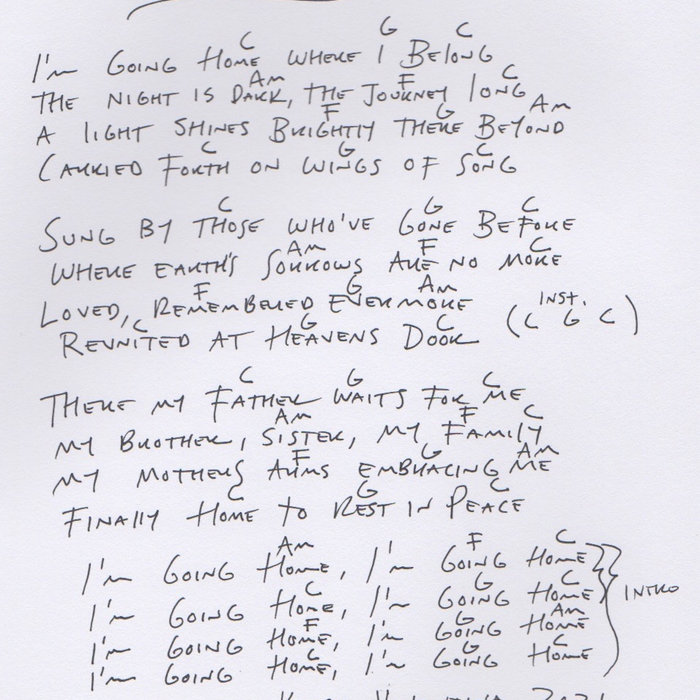 C G C
I'm Going Home where I Belong
Am F C
The night is dark, the journey long
F G Am
A light shines brightly there beyond
C G C
Carried forth on wings of song
C G C
Sung by those who've gone before
Am F C
Where earth's sorrows are no more
F G Am
Loved, remembered evermore
Inst.
C G C
Reunited at Heavens Door (C G C)
C G C
There my Father waits for me
Am F C
My brother, sister, my family
F G Am
My mothers arms embracing me
C G C
Finally home to rest in peace
Am F C
I'm going home, I'm going home
C G C
I'm going home, I'm going home Intro
F G Am
I'm going home, I'm going home
C G C
I'm going home, I'm going home